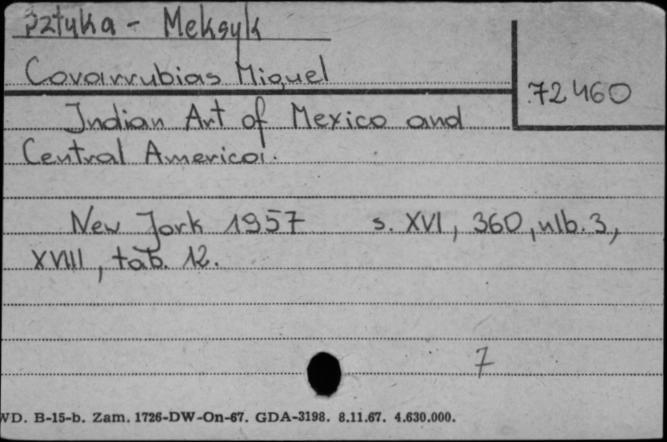 Sztuka - Meksyk
Covarrubias Miguel
72460
Indian Art of Mexico and
Central America.
New Jork 1957 s. XVI, 360, nlb. 3,
XVIII, tab. 12.
7
WD. B-15-b. Zam. 1726-DW-On-67. GDA-3198. 8.11.67. 4.630.000.